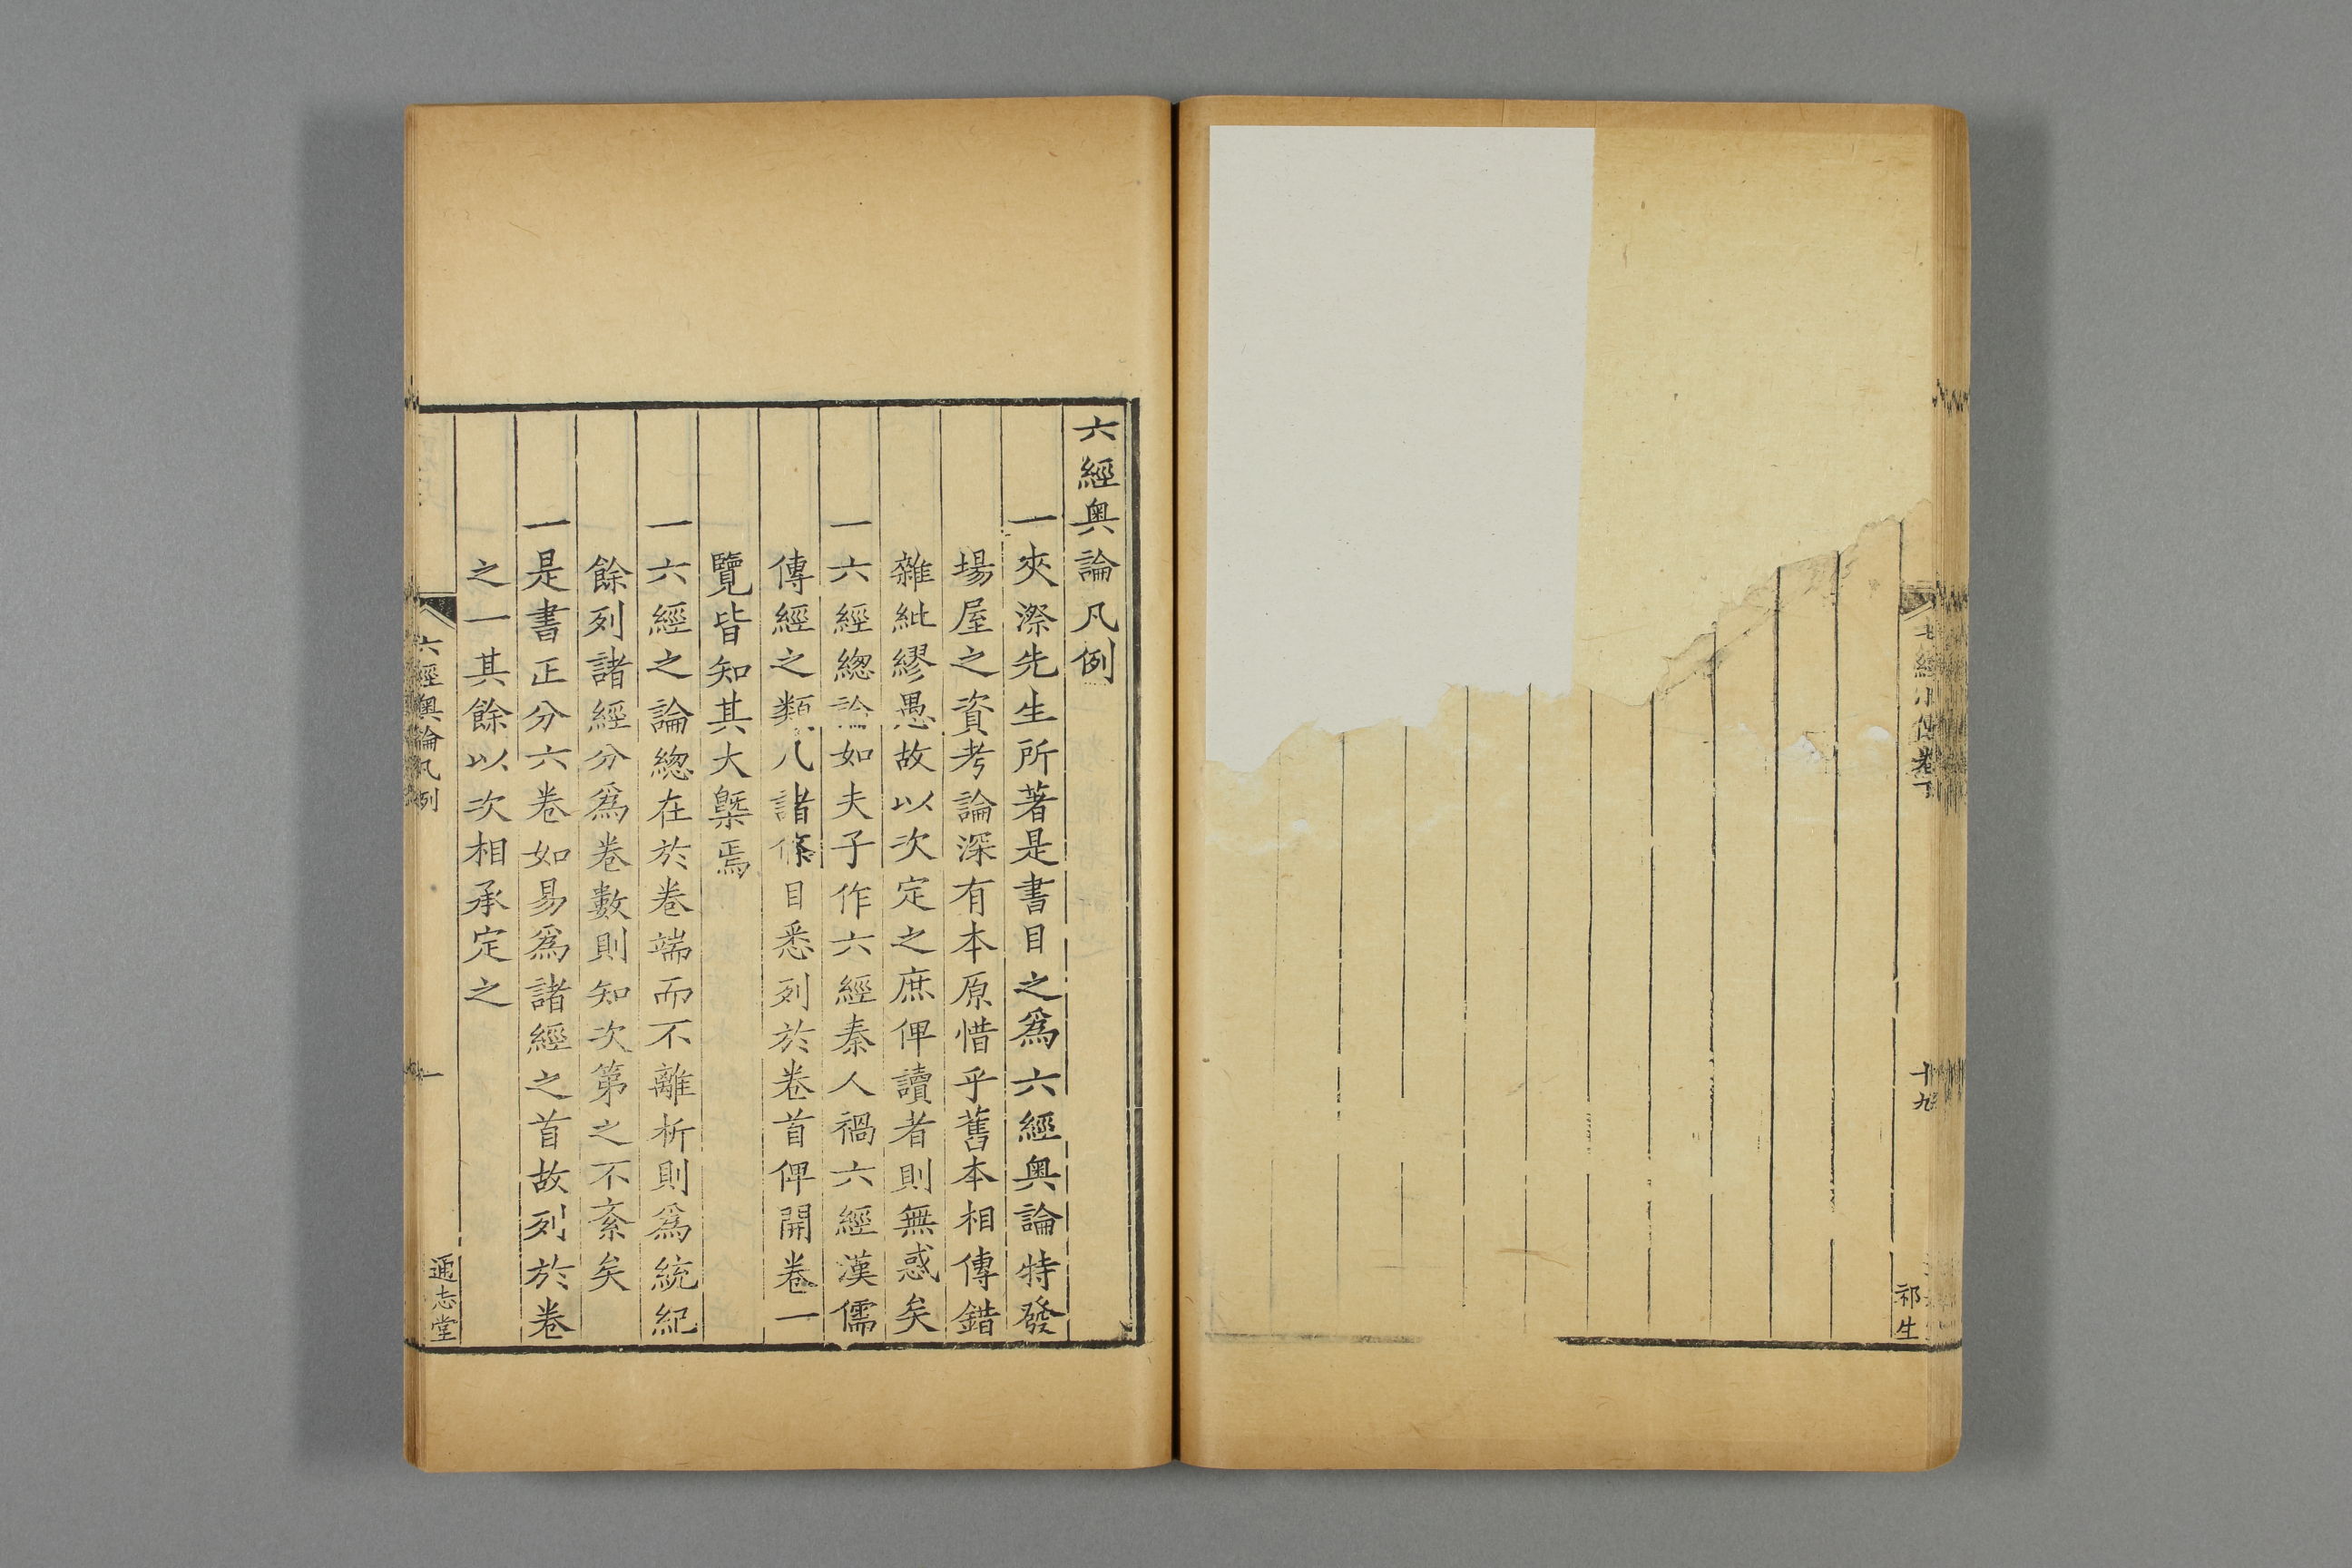 七經小傳卷下
十九
祁生
六經奧論凡例
一夾漈先生所著是書目之爲六經奧論特發
場屋之資考論深有本原惜乎舊本相傳錯
雜紕繆愚故以次定之庶俾讀者則無惑矣
一六經緫論如夫子作六經秦人禍六經漢儒
傳經之類八諸條目悉列於卷首俾開卷一
覽皆知其大槩焉
一六經之論緫在於卷端而不離析則爲統紀
餘列諸經分爲卷數則知次第之不紊矣
一是書正分六卷如易爲諸經之首故列於卷
之一其餘以次相承定之
六經奧論凡例
一
通志堂